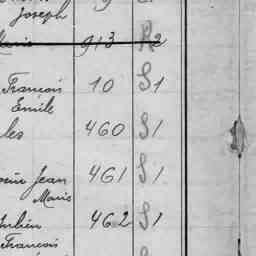 Joseph
913 R2
Francois 10 S1
Emile
les 460 S1
Jean 461 S1
Marie
Julien 462 S1
Francois